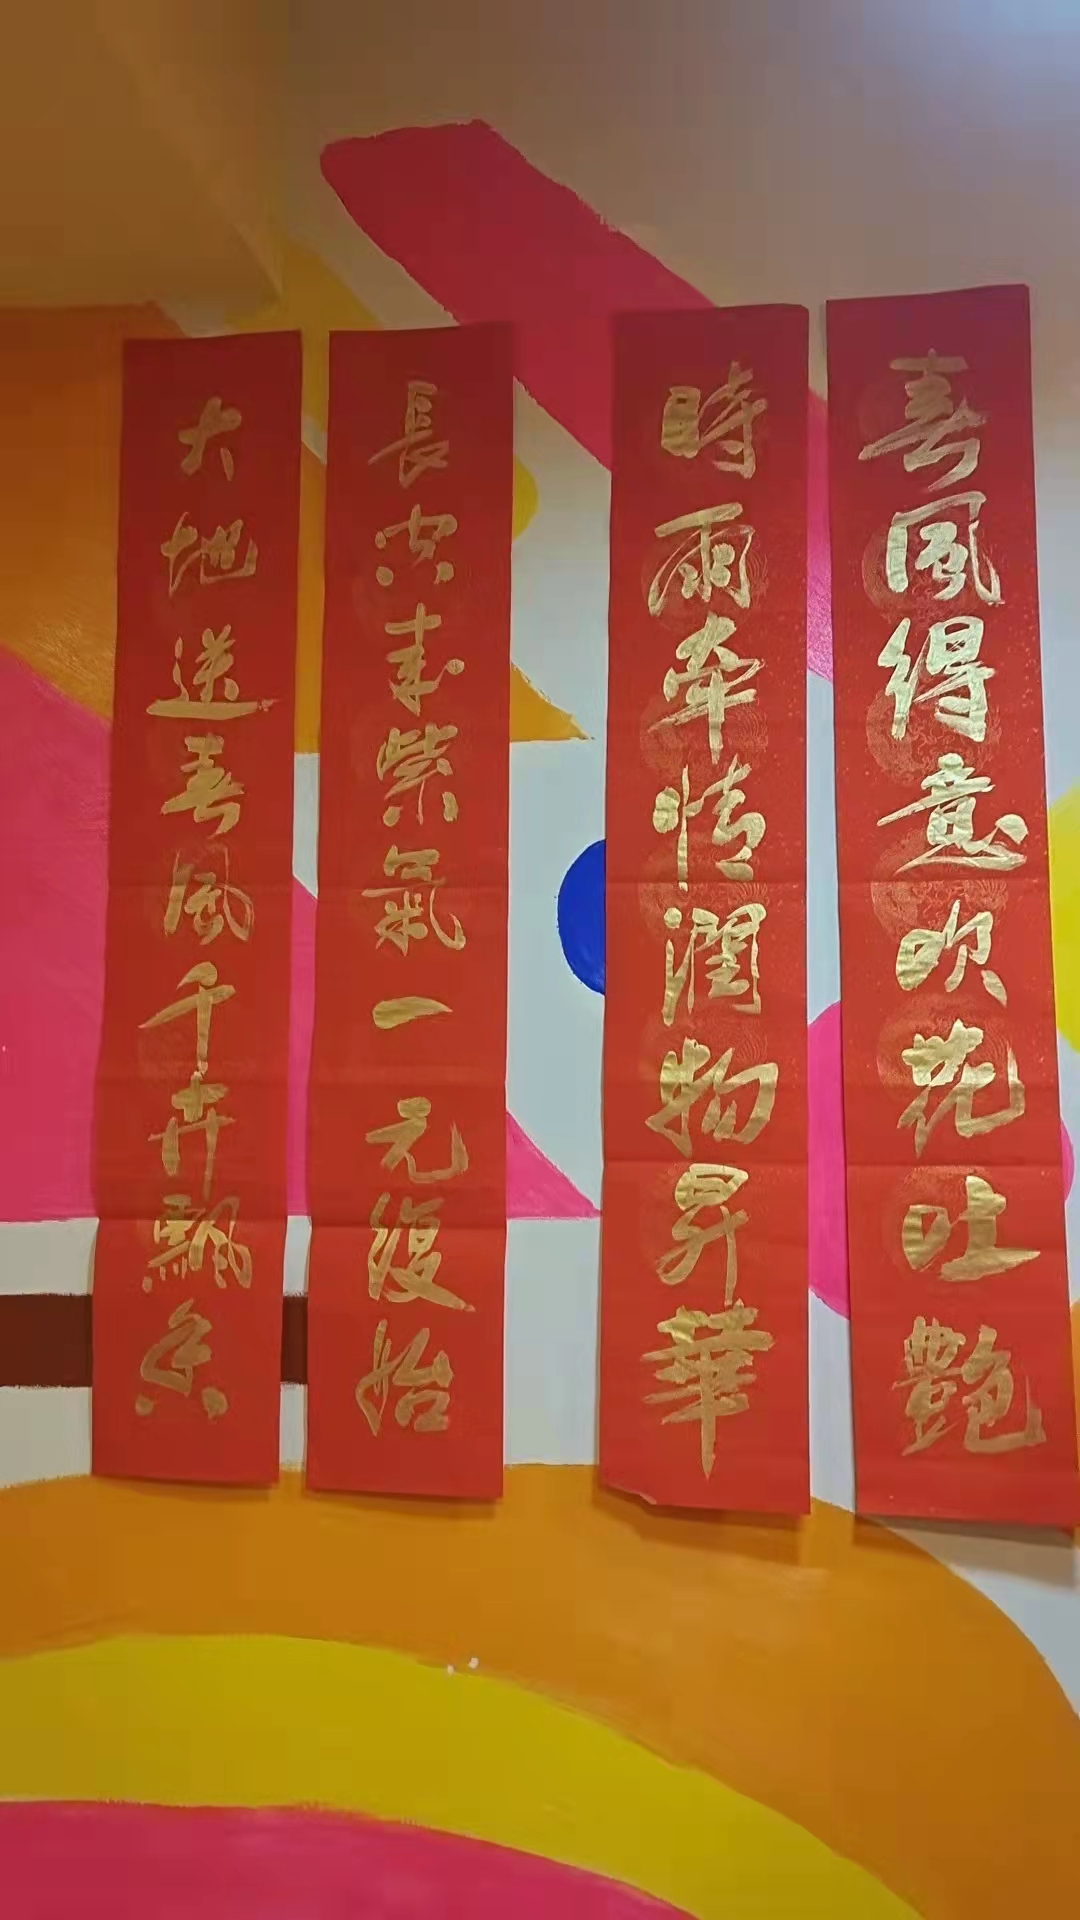 春風得意吹花吐艷
時雨牽情潤物昇華
長空來紫氣一元復始
大地送春風千卉飄香